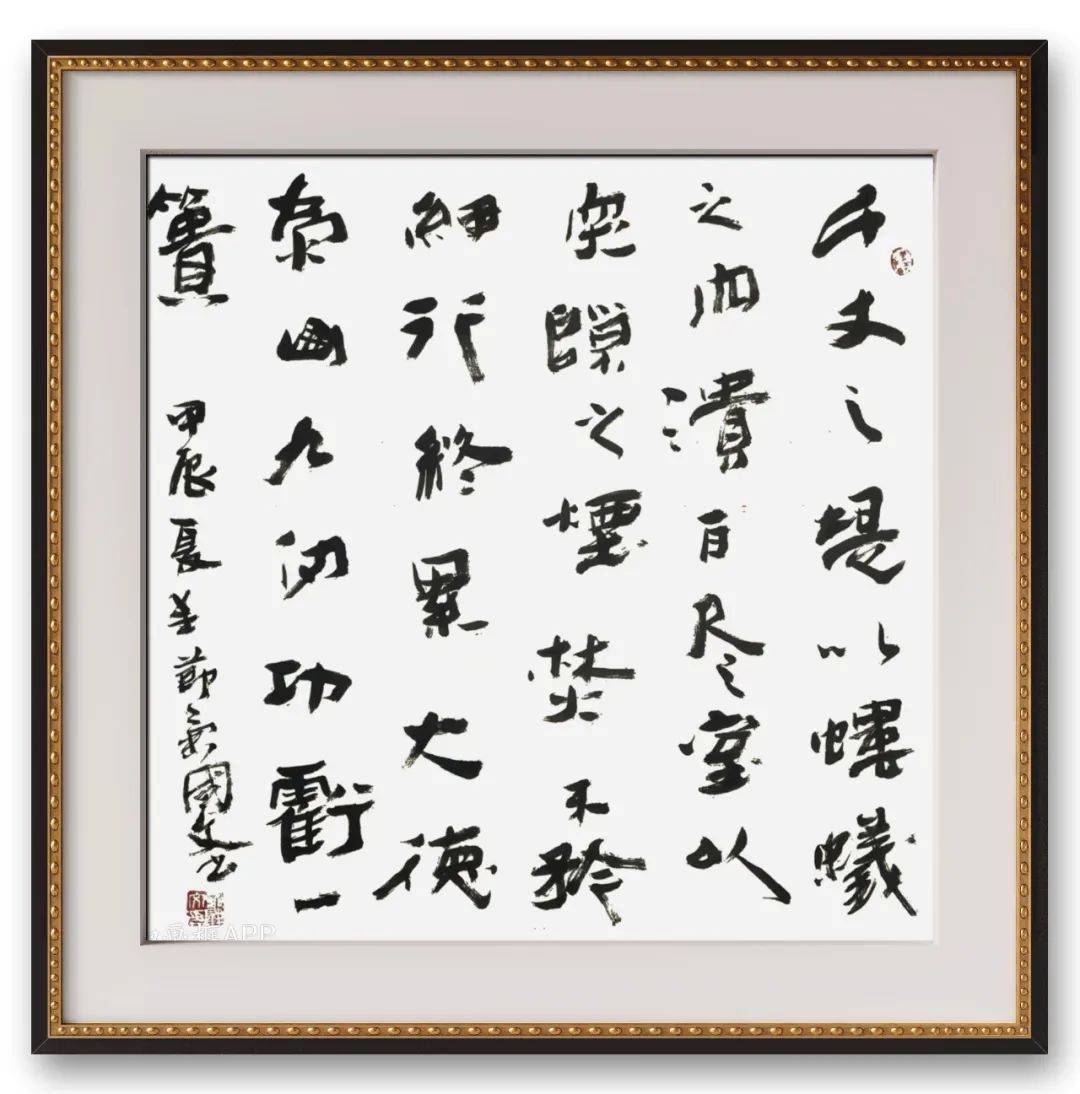 千丈之堤以螻蟻
之潰百尺之室以
突隙之煙焚不矜
細行終累大德
為山九仞功虧一
簣
甲辰夏至節氣國文書
APP